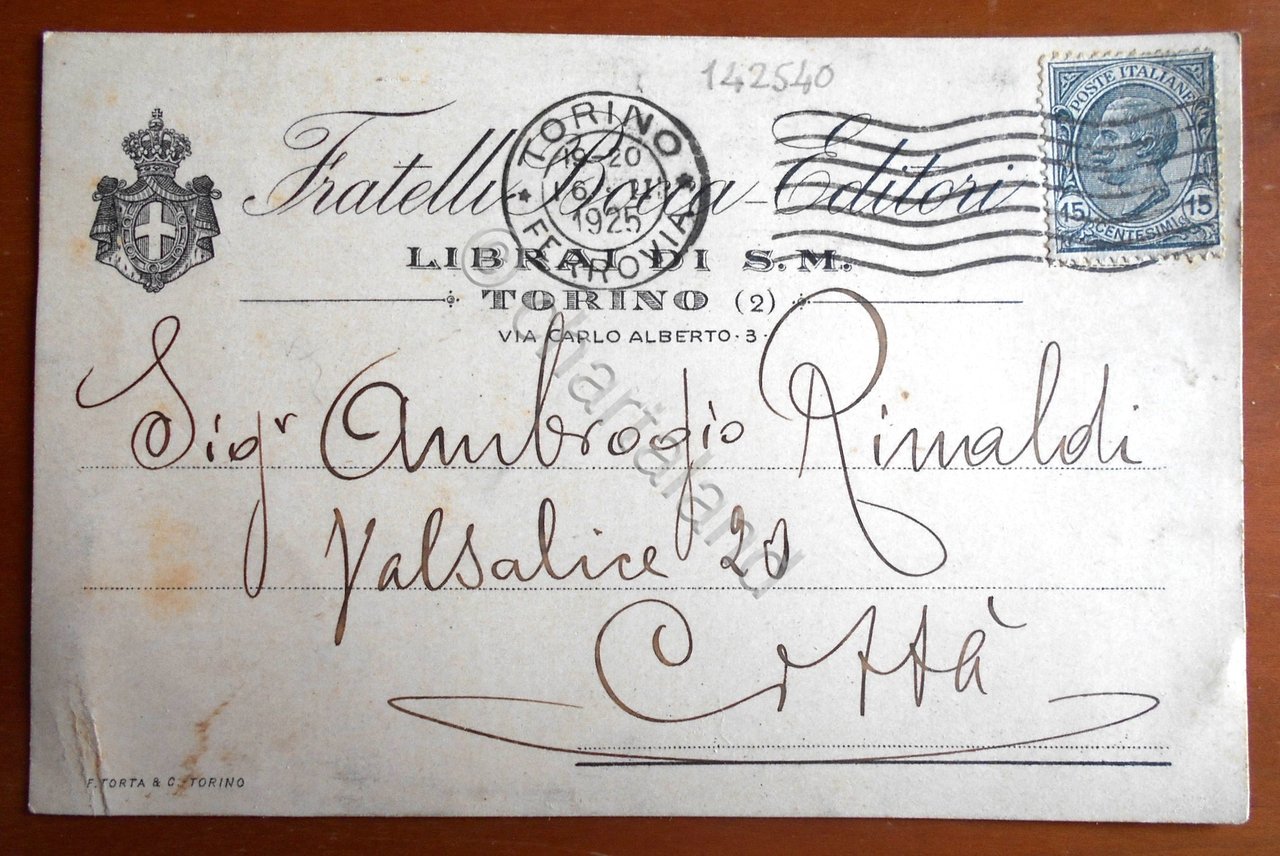 142540
POSTE ITALIANE
15 15
CENTESIMI
Fratelli Bocca - Editori
TORINO
19-20
16 · II
1925
FERROVIA
LIBRAI DI S. M.
TORINO (2)
VIA CARLO ALBERTO · 3 ·
Sigr Ambrogio Rinaldi
Valsalice
Città
F. TORTA & C. - TORINO
© chartaland